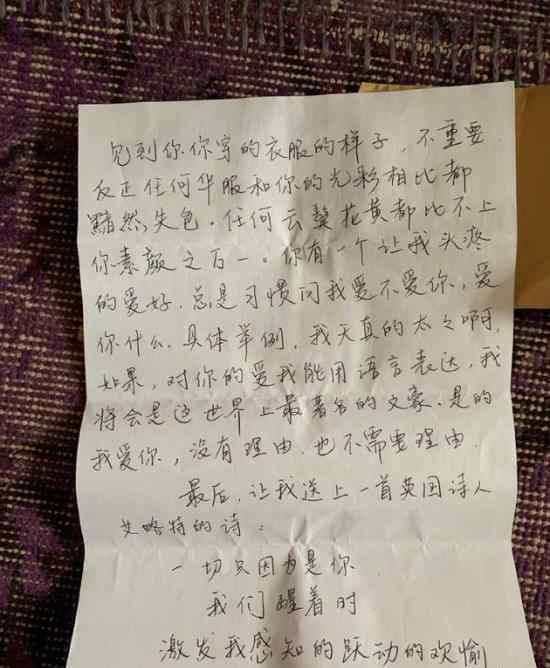 见到你你穿的衣服的样子，不重要
反正任何华服和你的光彩相比都
黯然失色.任何云鬓花黄都比不上
你素颜之万一。你有一个让我头疼
的爱好.总是习惯问我爱不爱你,爱
你什么.具体举例.我天真的太太啊,
如果,对你的爱我能用语言表达,我
将会是这世界上最著名的文豪.是的
我爱你,没有理由.也不需要理由.
最后.让我送上一首英国诗人
艾略特的诗:
一切只因为是你
我们醒着时
激发我感知的跃动的欢愉